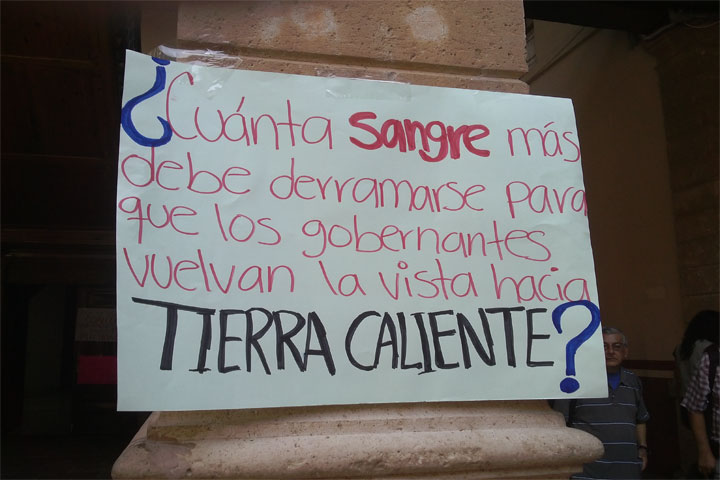 ¿Cuánta sangre más
debe derramarse para
que los gobernantes
vuelvan la vista hacia
TIERRA CALIENTE?